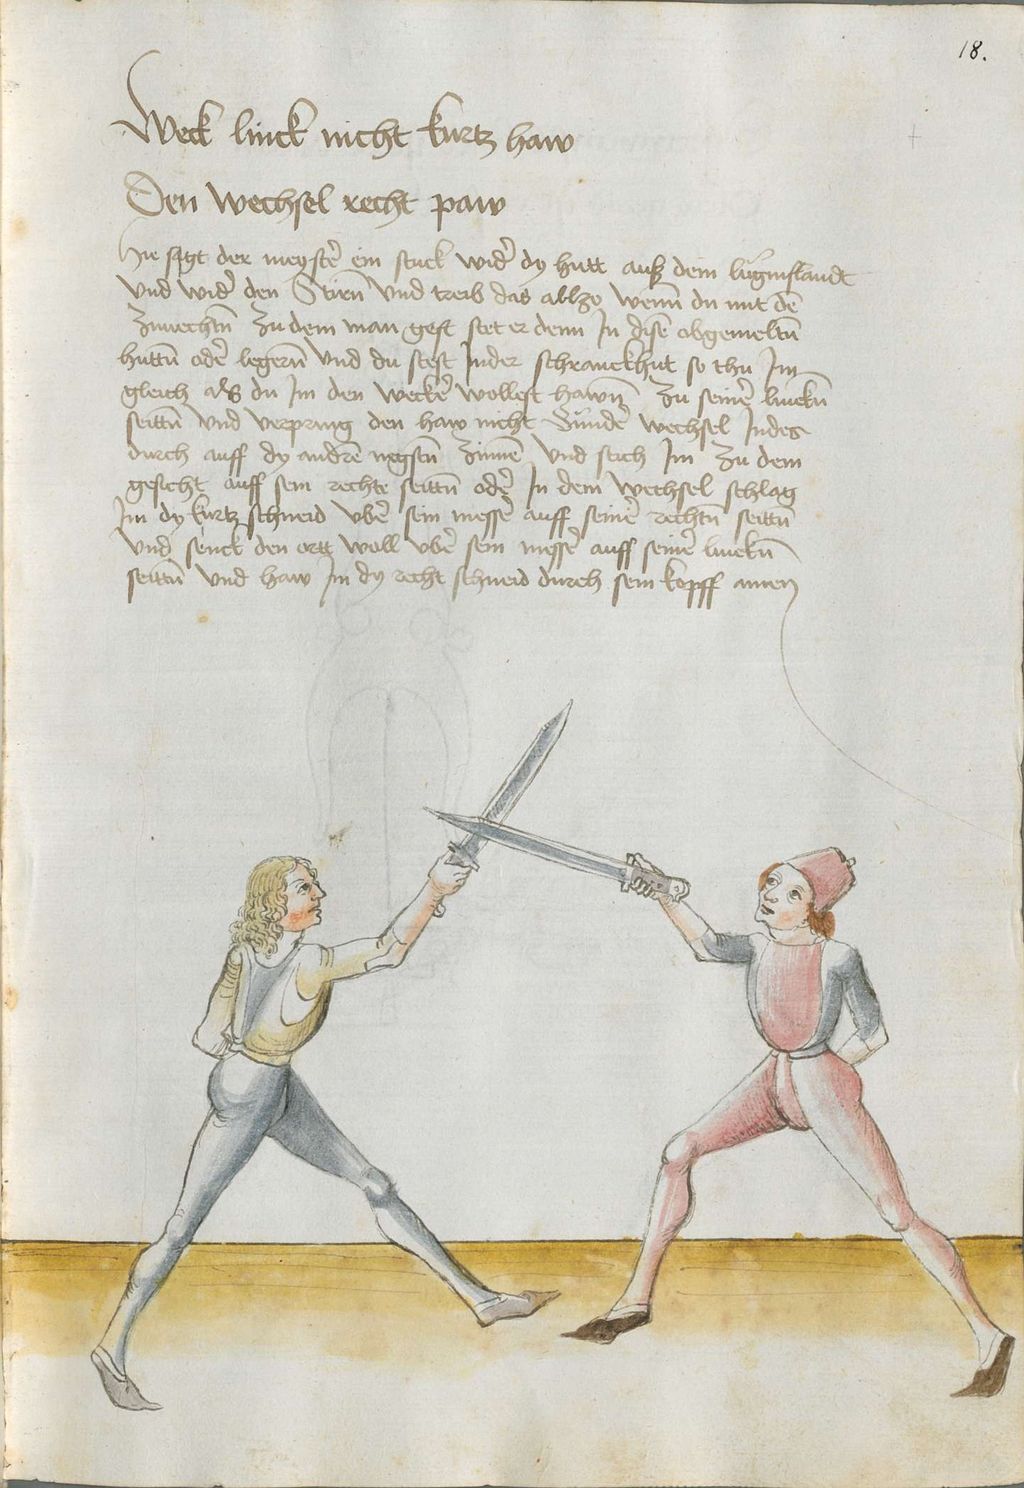 18.
Weck linck nicht kurtz haw
Den wechsel recht paw
Hie sagt der meyster̃ ein stuck wider̃ dy hutt auß dem luginslandt
Vnd wider̃ den Stirn̄ Vnd treib das allzo wenn̄ du mit dē
Zuuechtn̄ Zu dem man gest stet er denn Jn disē obgemeltn̄
huttn̄ oder̃ legern̄ Vnd du stest Jn der schranckhut so thu Jm
gleich als du Jm den wecker̃ wollest hawn̄ Zu seiner̃ linckn̄
seittn̄ Vnd verpring den haw nicht Sunder̃ wechsel Jndes
durch auff dy andrē negstn̄ Zinnē Vnd stich Jm Zu dem
gesicht auff sein rechte seittn̄ oder̃ Jn dem wechsel schlag
Jm dy kurtz schneid vber̃ sein messer̃ auff seiner̃ rechtn̄ seittn̄
Vnd senck den ortt woll vber̃ sein messer̃ auff seiner̃ linckn̄
seittn̄ Vnd haw Jm dy recht schneid durch sein kopff